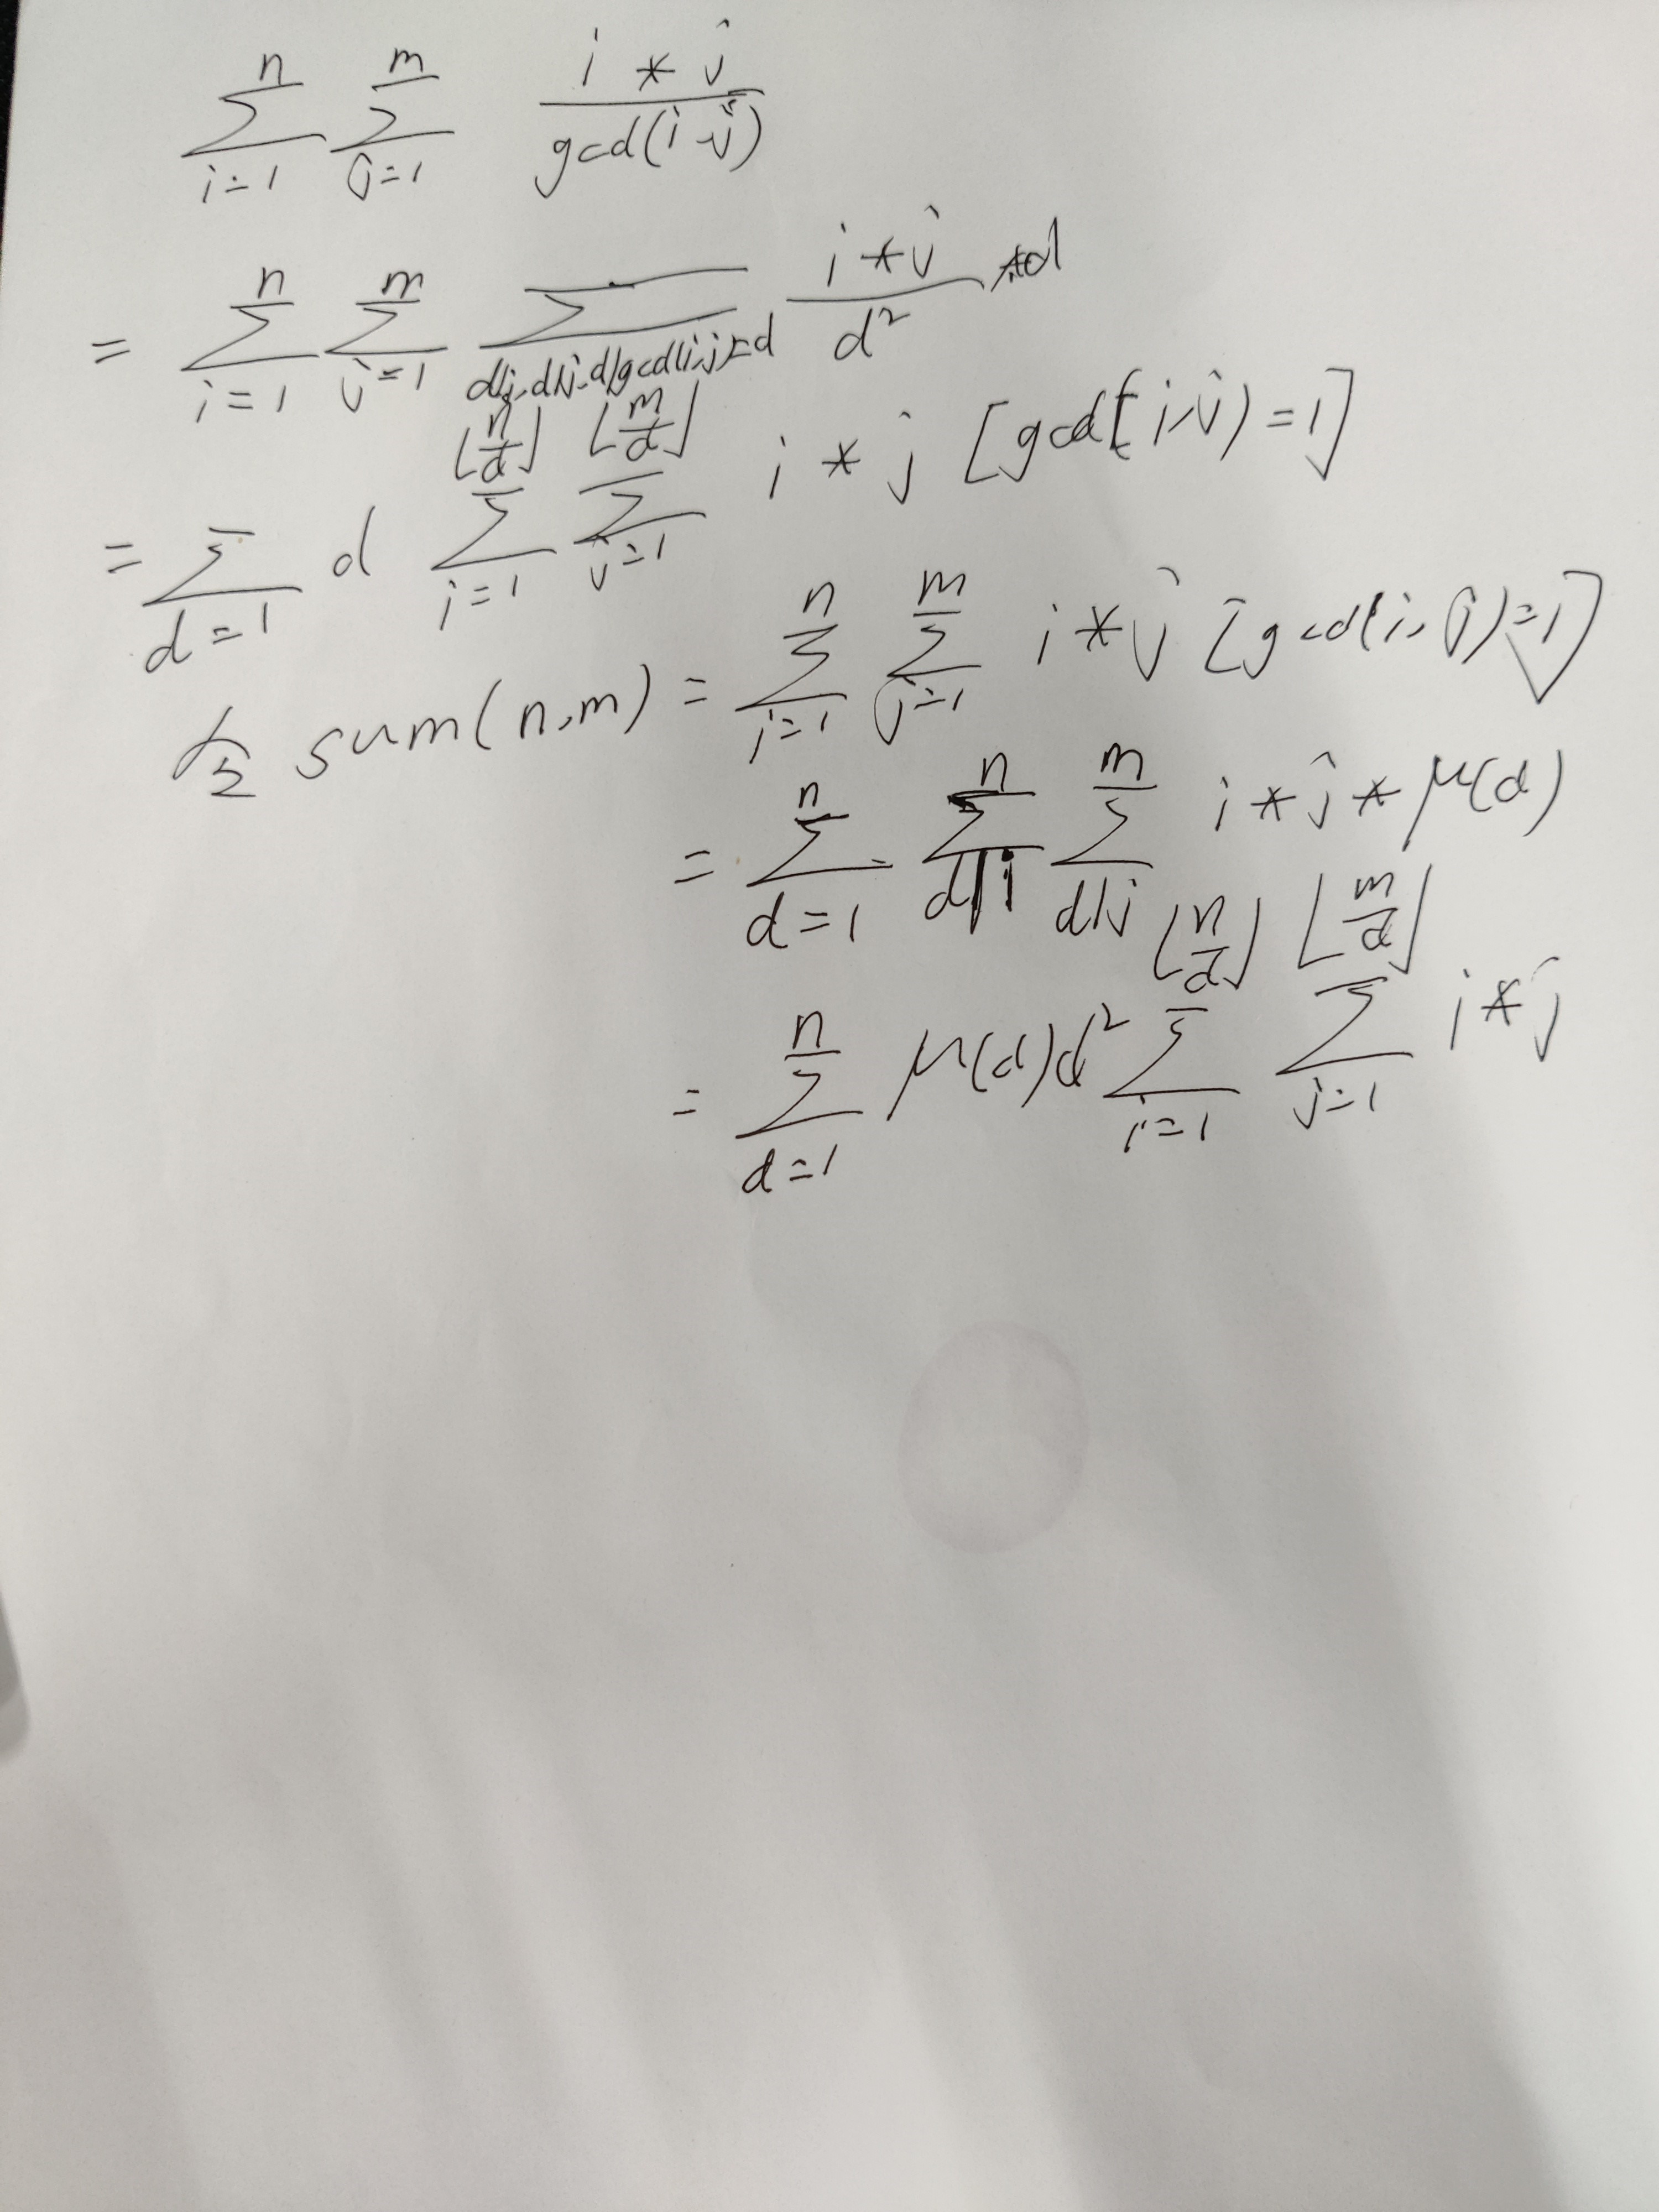 $\sum_{i=1}^{n} \sum_{j=1}^{m} \frac{i * j}{gcd(i,j)}$
$= \sum_{i=1}^{n} \sum_{j=1}^{m} \sum_{d|i, d|j, d|gcd(i,j)=d} \frac{i * j}{d^2} * d$
$= \sum_{d=1} d \sum_{i=1}^{\lfloor \frac{n}{d} \rfloor} \sum_{j=1}^{\lfloor \frac{m}{d} \rfloor} i * j [gcd(i,j)=1]$
$sum(n,m) = \sum_{i=1}^{n} \sum_{j=1}^{m} i * j [gcd(i,j)=1]$
$= \sum_{d=1}^{n} \sum_{d|i}^{n} \sum_{d|j}^{m} i * j * \mu(d)$
$= \sum_{d=1}^{n} \mu(d) d^2 \sum_{i=1}^{\lfloor \frac{n}{d} \rfloor} \sum_{j=1}^{\lfloor \frac{m}{d} \rfloor} i * j$